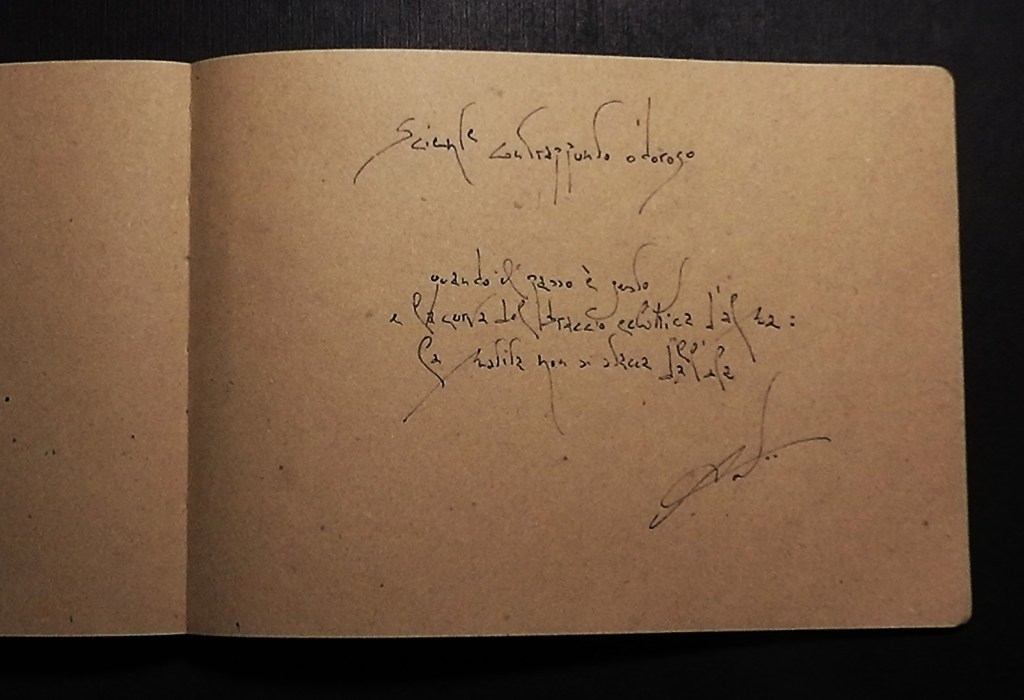 Sciente contrappunto odoroso
quando il passo è gesto
e la curva del braccio eclittica d'alma:
la matita non si stacca dall'ala